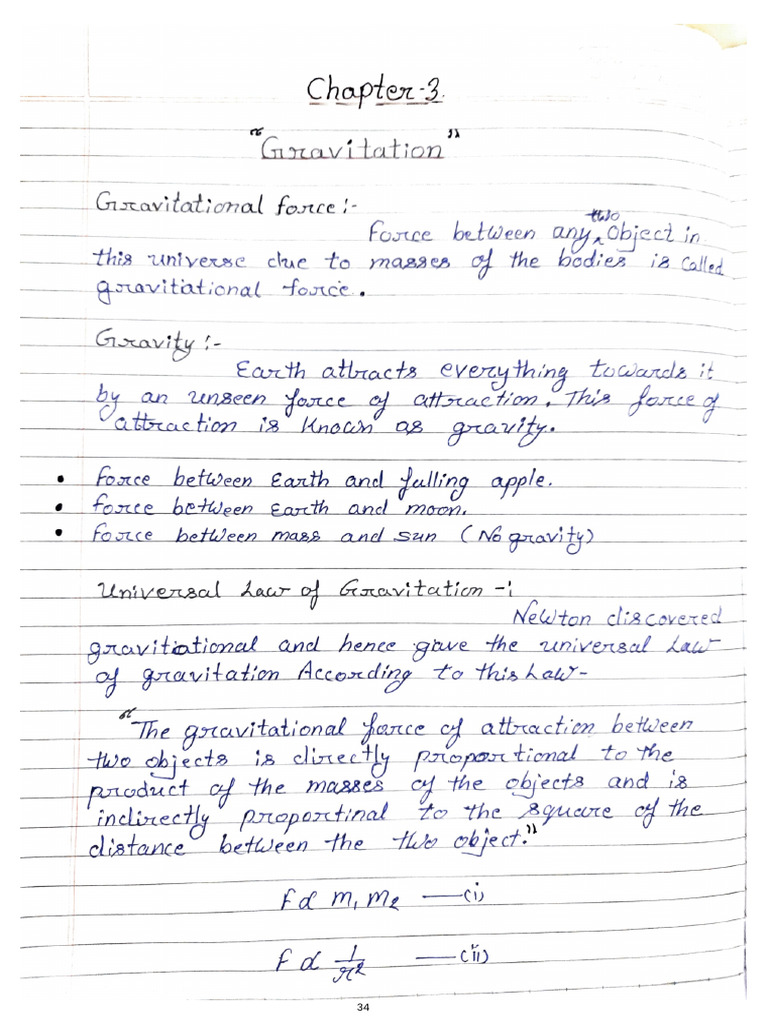 Chapter-3.
"Gravitation"
Gravitational force :-
Force between any two object in
this universe due to masses of the bodies is called
gravitational force.
Gravity :-
Earth attracts everything towards it
by an unseen force of attraction. This force of
attraction is known as gravity.
• Force between Earth and falling apple.
• Force between Earth and moon.
• Force between mass and sun (No gravity)
Universal Law of Gravitation -:
Newton discovered
gravitational and hence gave the universal Law
of gravitation According to this Law-
"The gravitational force of attraction between
two objects is directly proportional to the
product of the masses of the objects and is
indirectly proportinal to the square of the
distance between the two object."
F α m₁ m₂ —(i)
F α 1/r² —(ii)
34